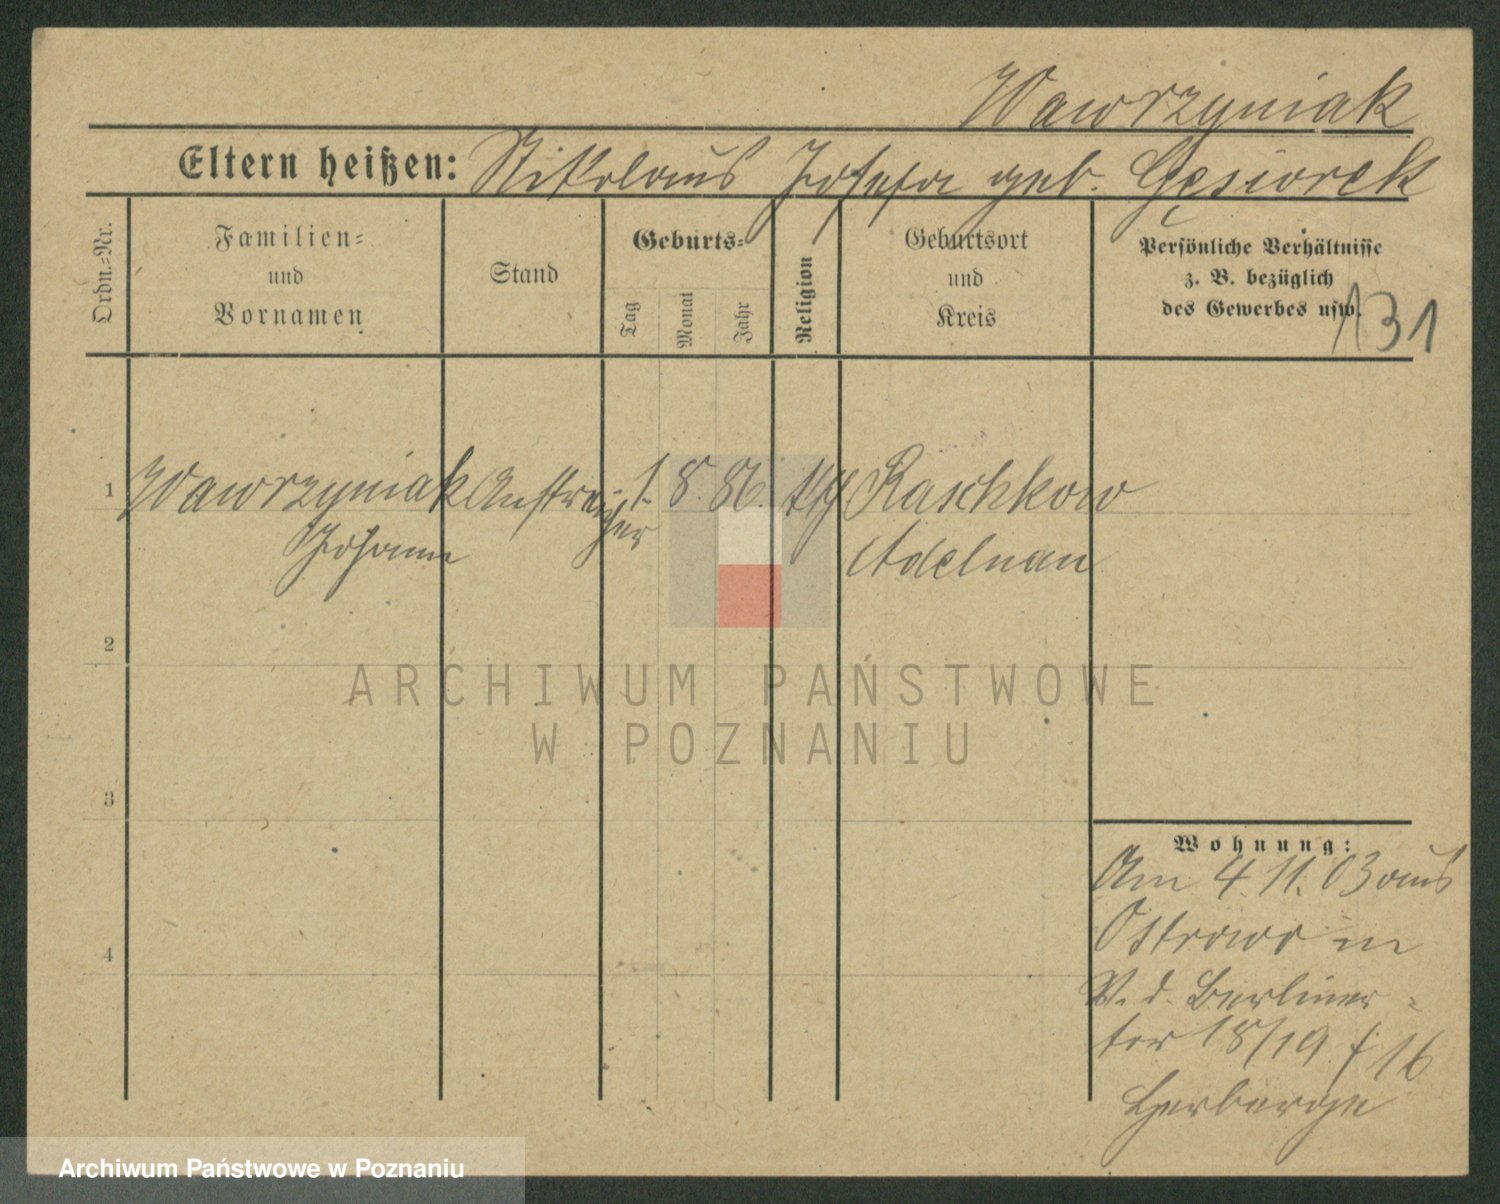 Wawrzyniak
Eltern heißen: Nikolaus Josefa geb. Gęsiorek
Ordn.-Nr.
Familien-
und
Vornamen
Stand
Geburts-
Tag
Monat
Jahr
Religion
Geburtsort
und
Kreis
Persönliche Verhältnisse
z. B. bezüglich
des Gewerbes usw.
131
1 Wawrzyniak Anstrei- 1. 8. 86. Raschkow
Johann cher Adelnau
2
3
4
Wohnung:
Am 4. 11. 03 aus
Ostrowo in
V. d. Berliner-
tor 18/19 f. 16
Herberge
ARCHIWUM PAŃSTWOWE
W POZNANIU
Archiwum Państwowe w Poznaniu